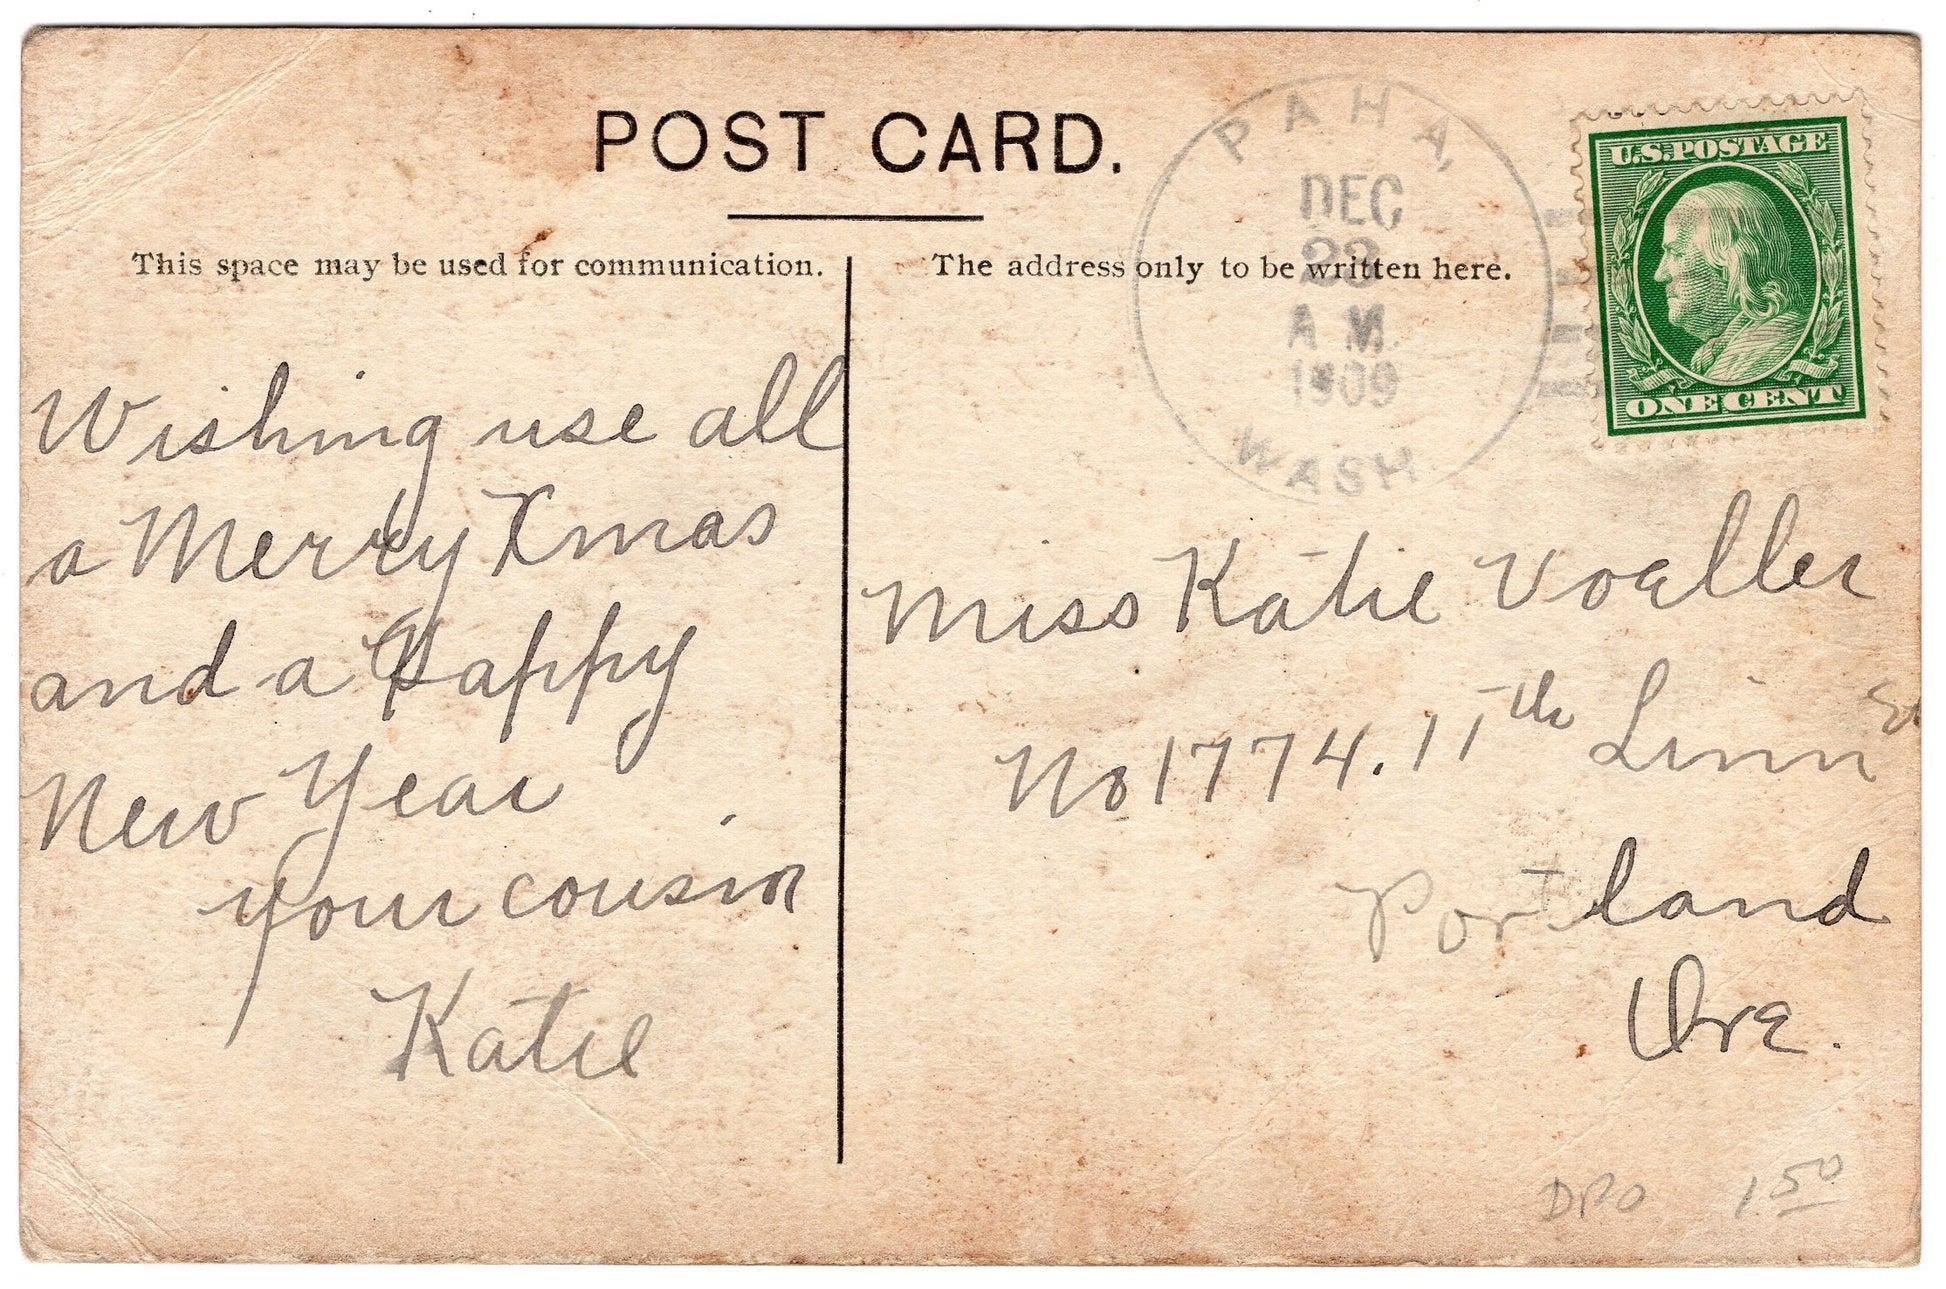 POST CARD.
This space may be used for communication.
Wishing use all
a Merry Xmas
and a Happy
New Year
your cousin
Katie
The address only to be written here.
PAHA,
DEC
23
A M.
1909
WASH
U.S. POSTAGE
ONE CENT
Miss Katie Voeller
No 1774. 11th Linn St
Portland
Ore.
DPO 1 50